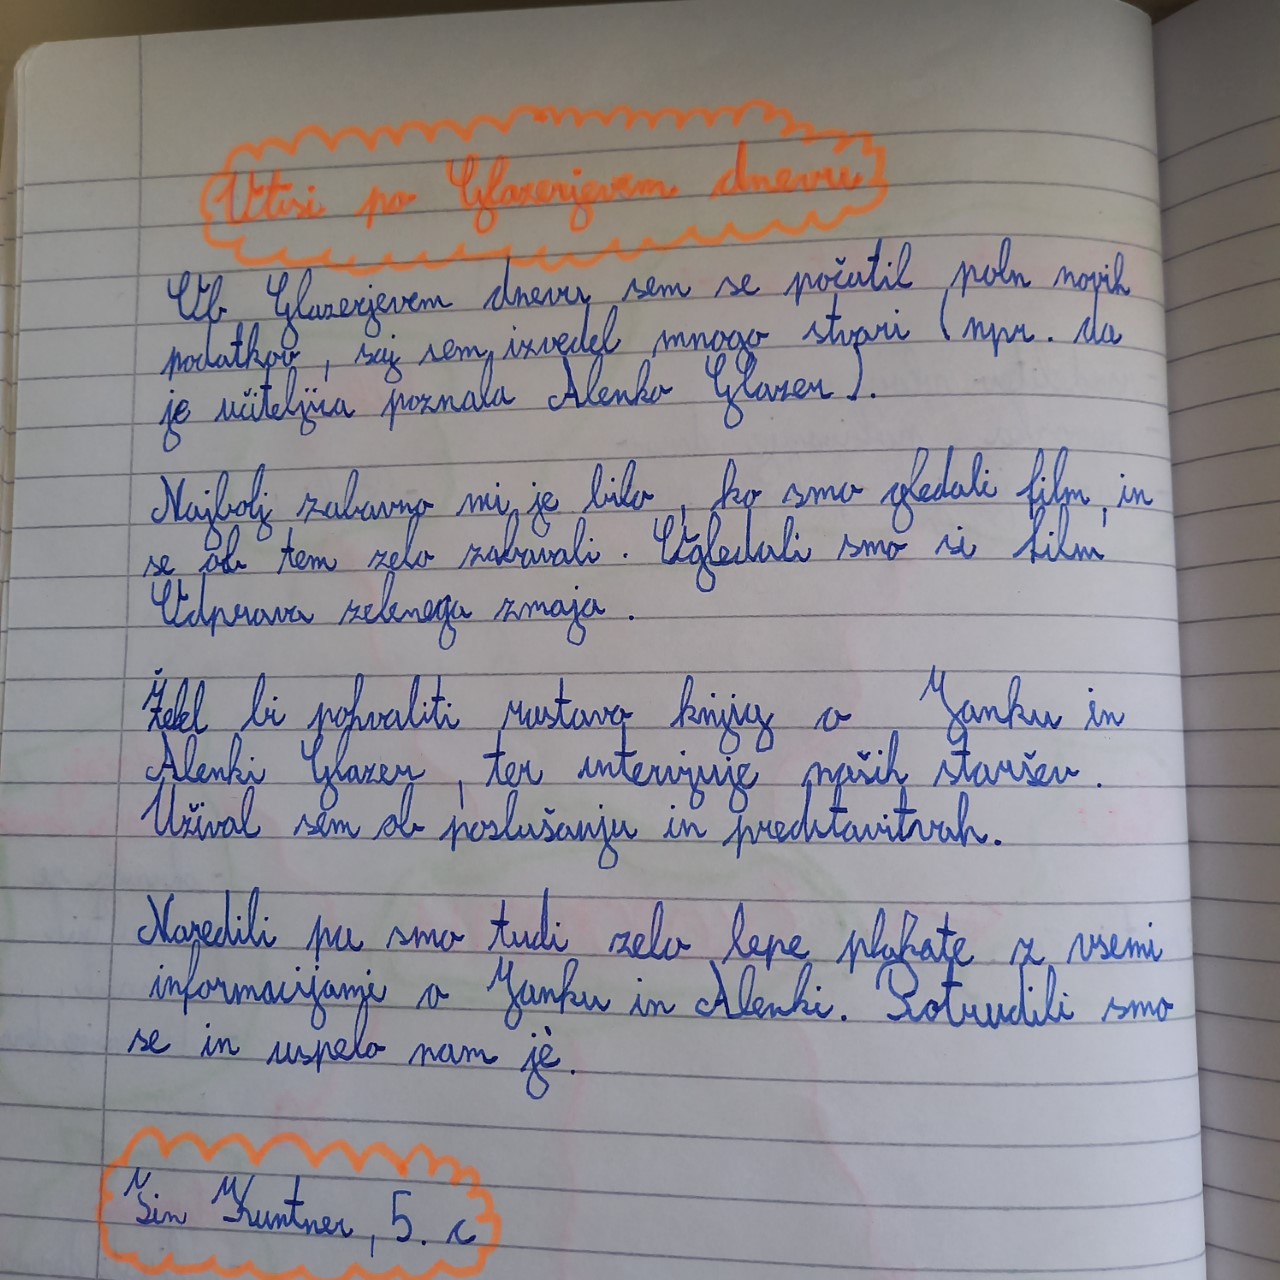 Vtisi po Glazerjevem dnevu
Ob Glazerjevem dnevu sem se počutil poln novih
podatkov, saj sem izvedel mnogo stvari (npr. da
je učiteljica poznala Alenko Glazer).
Najbolj zabavno mi je bilo, ko smo gledali film, in
se ob tem zelo zabavali. Ogledali smo si film
Odprava zelenega zmaja.
Želel bi pohvaliti razstavo knjig o Janku in
Alenki Glazer, ter intervjuje naših staršev.
Užival sem ob poslušanju in predstavitvah.
Naredili pa smo tudi zelo lepe plakate z vsemi
informacijami o Janku in Alenki. Potrudili smo
se in uspelo nam je.
Kuntner, 5. c